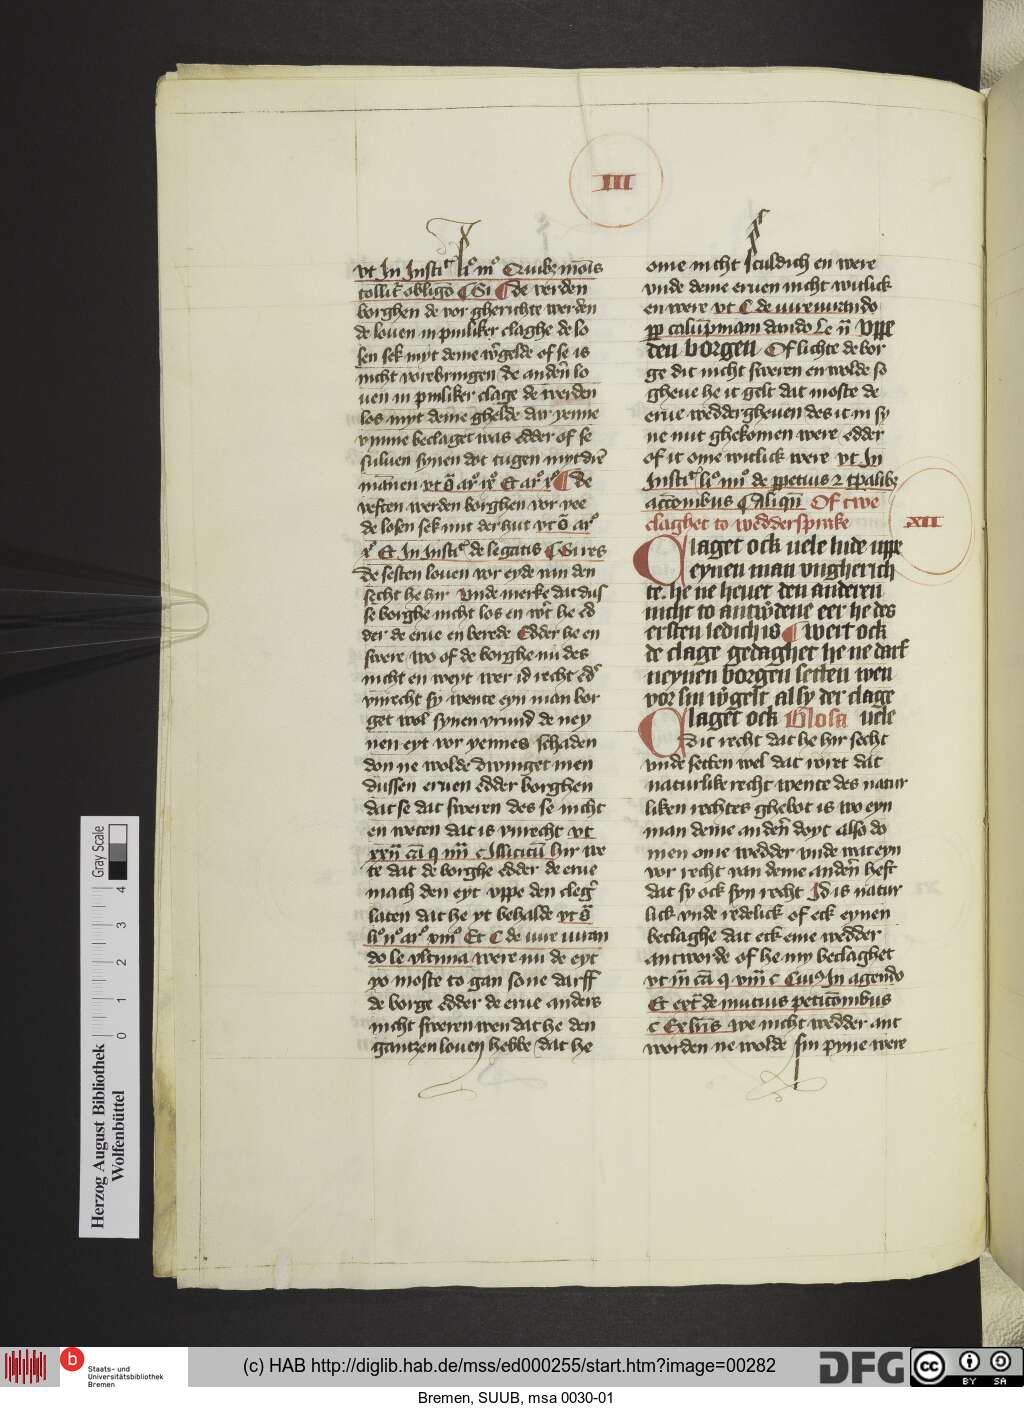 III
vt In Insti᷒ li° iii° Quibz mo͞is
tollit᷒ obligo͞ ¶ Si ¶ de verden
borghen de vor gherichte werden
de louen in pinliker claghe de lo
sen sek myt deme w͛gelde of se is
nicht vorebringen de ander͞n lo
uen in pinliker clage de werden
los myt deme ghelde dar yenne
vmme beclaget was edder of se
suluen synen dot tugen myt dre͞
mannen vt o͞ ar° ix° Et ar° x° ¶ de
veften werden borghen vor vee
de losen sek mit der hut vt o͞ ar°
x° Et In Insti᷒ de legatis ¶ Si res
De sesten louen vor eyde van den
secht he hir Vnde merke dat dus
se borghe nicht los en w͛t he ed
der de erue en berede Edder he en
swere wo of de borghe nu des
nicht en weyt wer id recht ed͛
vnrecht sy wente eyn man bor
get wol synen vrund de ney
nen eyt vor yennes schaden
don ne wolde dwinget men
dussen eruen edder borghen
dat se dat sweren des se nicht
en weten dat is vnrecht vt
xxii͞ ca͞ q iiii c Illicitu͞ hir we
te dat de borghe edder de erue
mach den eyt vppe den cleg͛
laten dat he yt behalde vt o͞
li° ii° ar° viii° Et C de iure iuran
do le vltima were nu de eyt
yo moste to gan sone darff
de borge edder de erue anders
nicht sweren wen dat he den
gantzen louen hebbe dat he
ome nicht sculdich en were
vnde deme eruen nicht witlick
en were vt C de iureiurando
pp calu͞pniam dando Le ii͞ Vppe
den borgen Of lichte de bor
ge dit nicht sweren en wolde so
gheue he it gelt dat moste de
erue weddergheuen des it in sy
ne nut ghekomen were edder
of it ome witlick were vt In
Insti᷒ li° iiii° de ppetuis 2 tpalibz
acc͞onibus ¶ Aliqn͞ Of twe
claghet to weddersprake
XII
Claget ock uele lude uppe
eynen man vngherich
te. he ne heuet den anderen
nicht to antw͛dene eer he des
ersten ledich is ¶ Wert ock
de clage gedaghet he ne darf
neynen borgen setten wen
vor sin w͛gelt al sy der clage
Claget ock Glosa uele
Dit recht dat he hir secht
vnde setten wel dat roret dat
naturlike recht wente des natur
liken rechtes ghebot is wo eyn
man deme ander͞n doyt also do
men ome wedder vnde wat eyn
vor recht van deme ander͞n heft
dat sy ock syn recht Id is natur
lick vnde redelick of eck eynen
beclaghe dat eck eme wedder
antworde of he my beclaghet
vt iii͞ ca͞ q viii͞ c Cui9 In agendo
Et ext͞ de mutuis petic͞onibus
c Ex l͞ris we nicht wedder ant
worden ne wolde sin pyne were
Herzog August Bibliothek
Wolfenbüttel
0 1 2 3 4
Gray Scale
b Staats- und
Universitätsbibliothek
Bremen
(c) HAB http://diglib.hab.de/mss/ed000255/start.htm?image=00282
DFG
cc BY SA
Bremen, SUUB, msa 0030-01